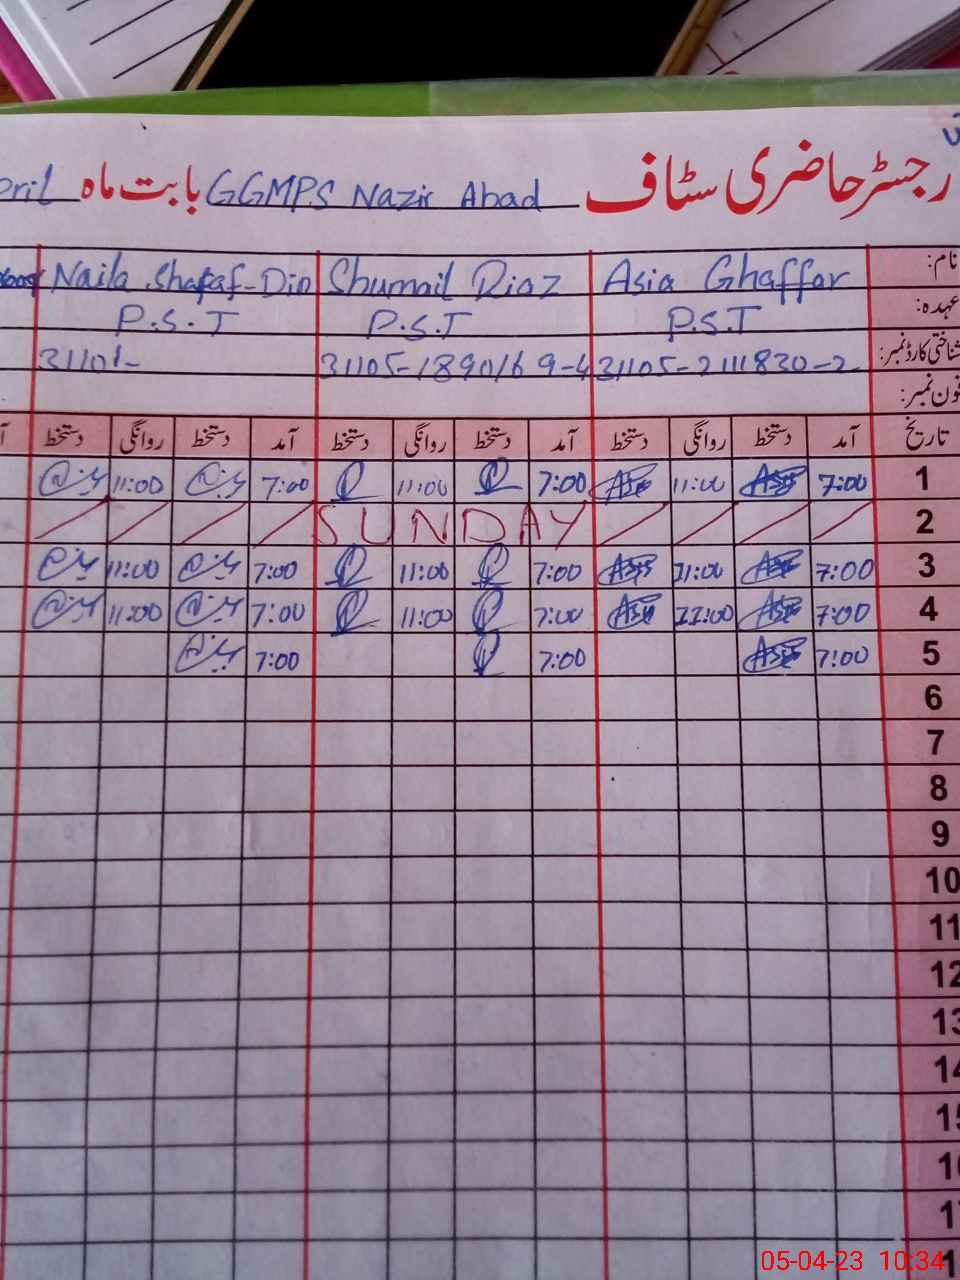 رجسٹر حاضری سٹاف GGMPS Nazir Abad بابت ماہ pril
نام: Asia Ghaffar Shumail Riaz Naila
عہدہ: P.S.T P.S.T P.S.T
شناختی کارڈ نمبر: 31105-2111830-2 31105-1890169-4 31101-
فون نمبر:
تاریخ آمد دستخط روانگی دستخط آمد دستخط روانگی دستخط آمد دستخط روانگی دستخط
1 7:00 11:00 7:00 11:00 7:00 11:00
2 SUNDAY
3 7:00 11:00 7:00 11:00 7:00 11:00
4 7:00 11:00 7:00 11:00 7:00 11:00
5 7:00 7:00 7:00
6
7
8
9
10
11
12
13
14
15
16
17
05-04-23 10:34